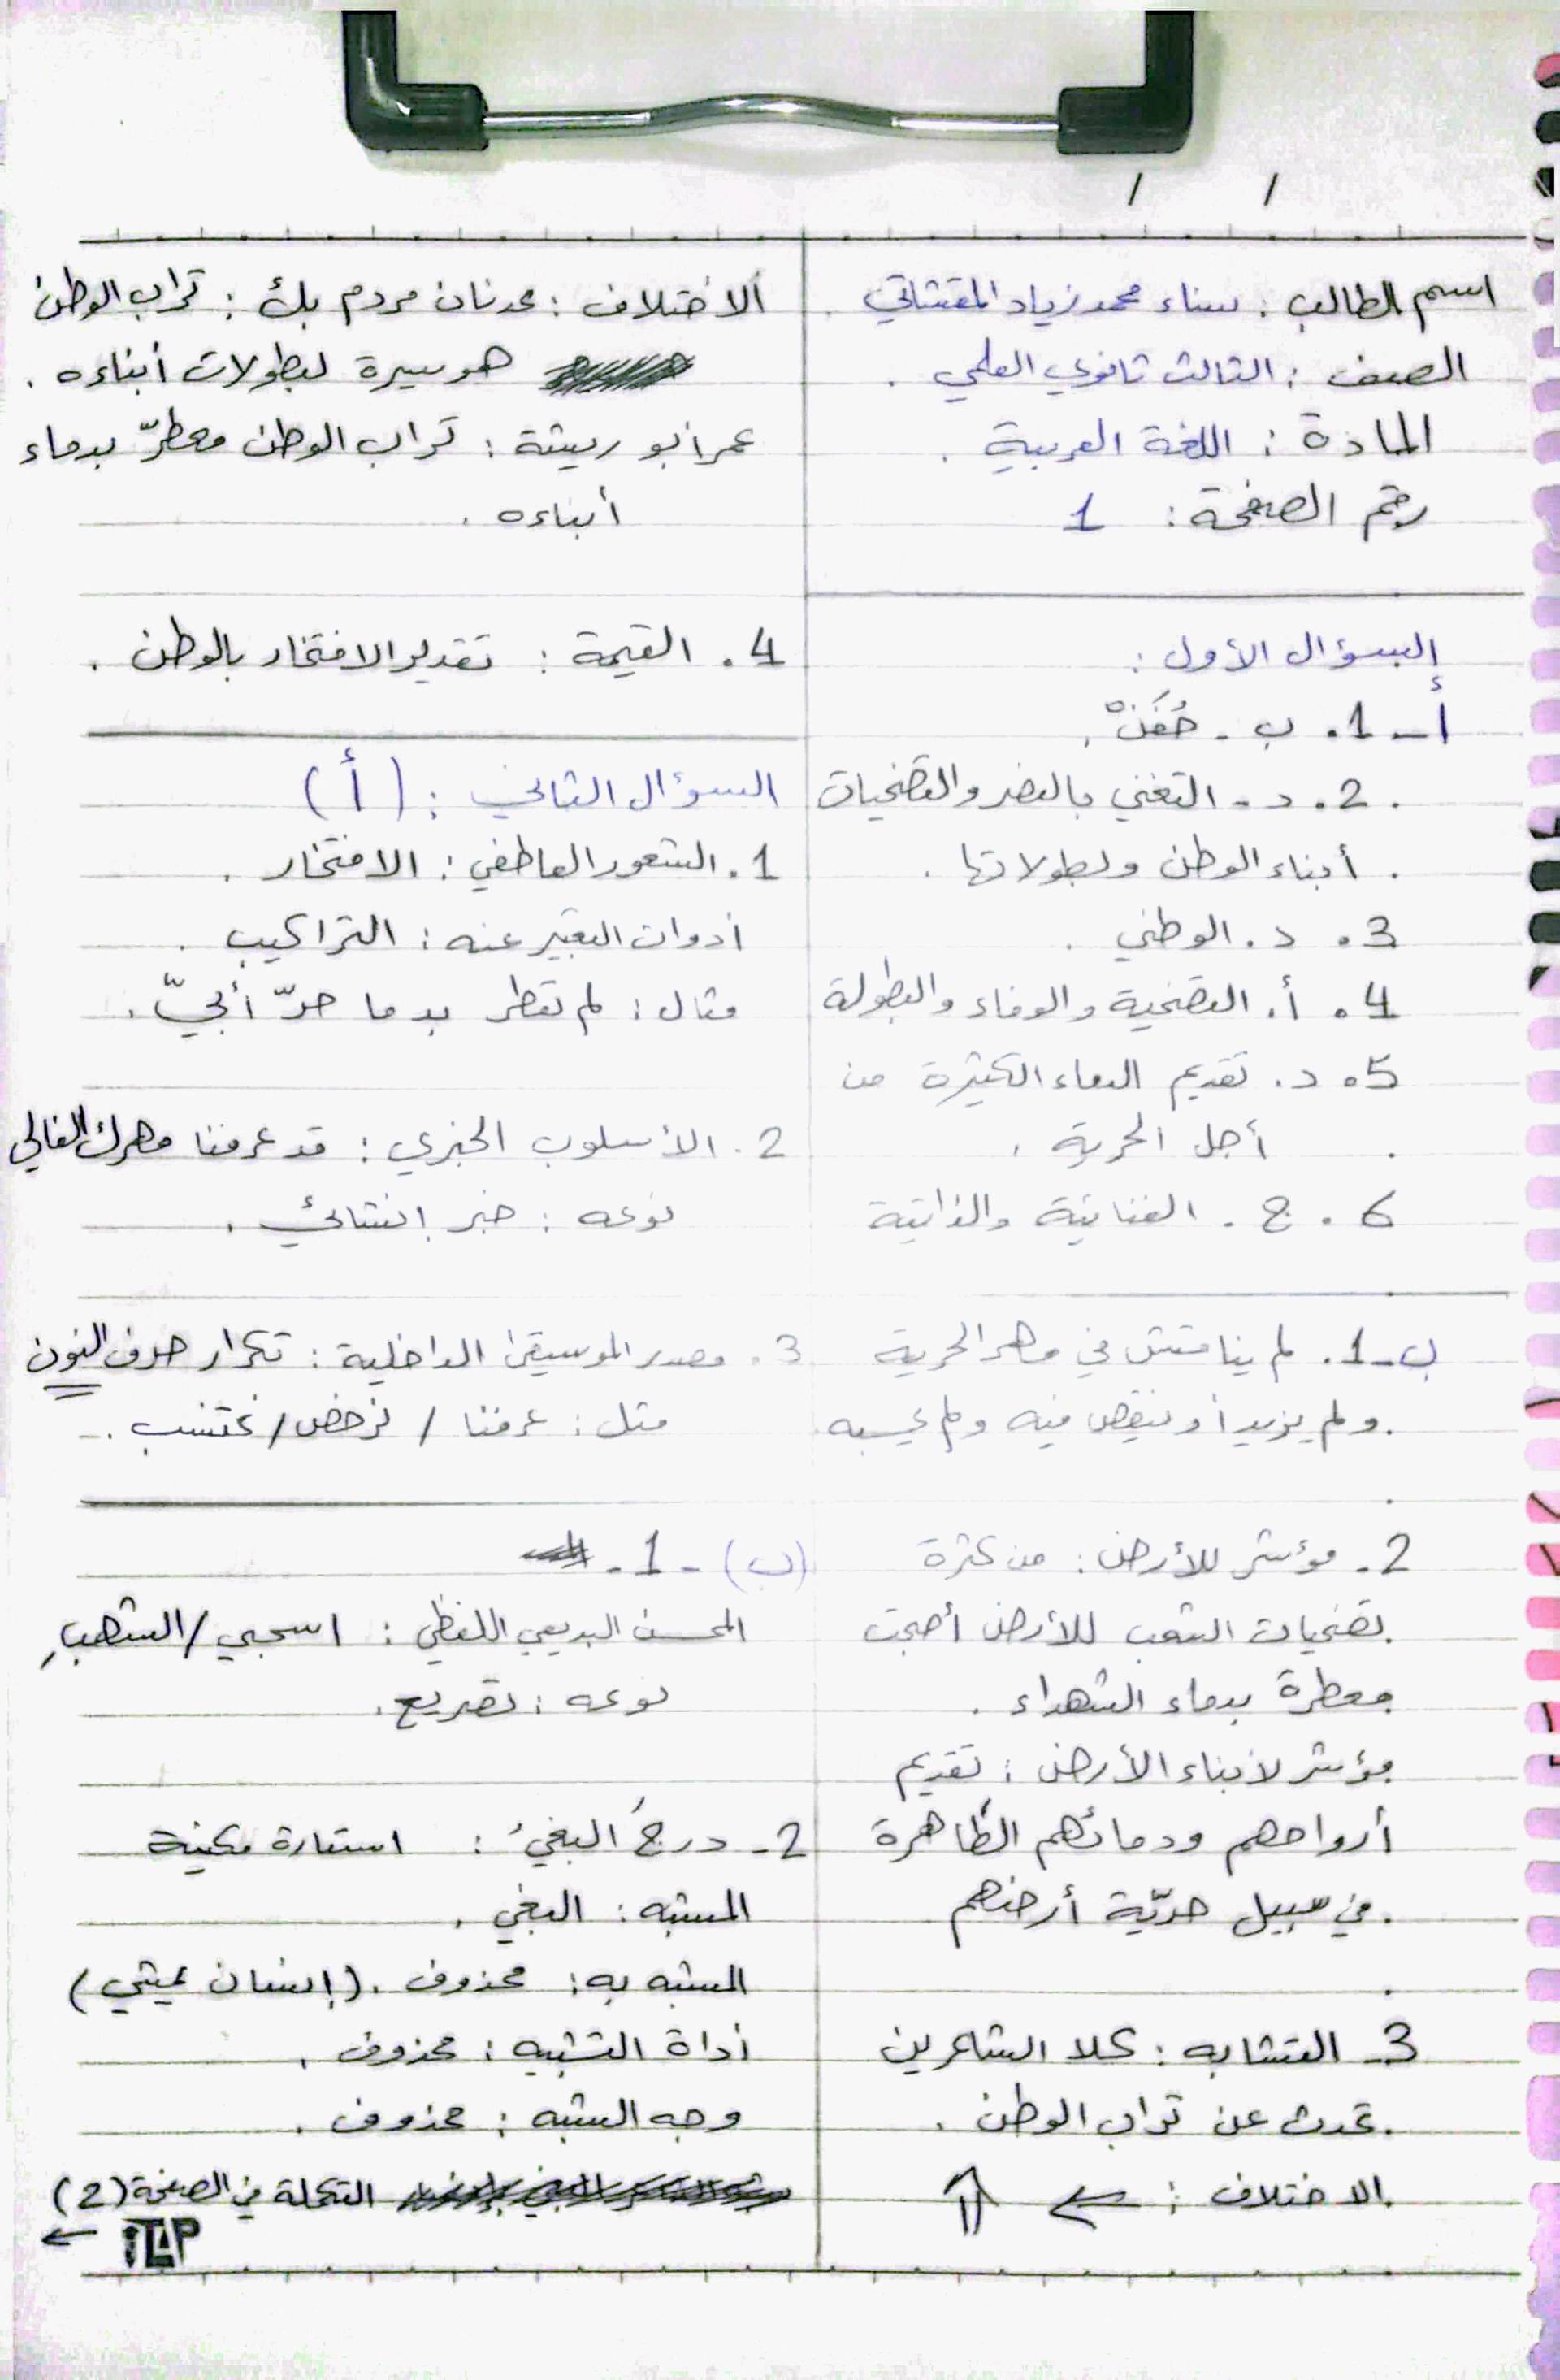 اسم الطالب : سناء محمد زياد
الصف : الثالث ثانوي العلمي .
المادة : اللغة العربية .
رقم الصفحة : 1
السؤال الأول :
أ - 1. ب -
2. د - التغني بالنصر والتضحيات
أبناء الوطن وبطولاتها .
3. د. الوطني .
4. أ. التضحية والوفاء والبطولة
5. د. تقديم الدماء الكثيرة من
أجل الحرية .
6. ج. الغنائية والذاتية
ب-1. لم يناقش في مهر الحرية
ولم يزيد أو ينقص فيه ولم
2. مؤشر للأرض : من كثرة
تضحيات الشعب للأرض أصبحت
معطرة بدماء الشهداء .
مؤشر لأبناء الأرض : تقديم
أرواحهم ودمائهم الطاهرة
في سبيل حريّة أرضهم
3- التشابه : كلا الشاعرين
تحدث عن تراب الوطن .
الاختلاف :
ألاختلاف : عدنان مردم بك : تراب الوطن
هو سيرة لبطولات أبناءه .
عمر أبو ريشة : تراب الوطن معطرّ بدماء
أبناءه .
4. القيمة : تقدير الافتخار بالوطن .
السؤال الثاني : (أ)
1. الشعور العاطفي : الافتخار .
أدوات التعبير عنه : التراكيب .
مثال : لم تعطر بدما حرّ أبيّ .
2. الأسلوب الخبري : قد عرفنا مهرك الغالي
نوعه : خبر إنشائي .
3. مصدر الموسيقى الداخلية : تكرار حرف النون
مثل : عرفنا / نرخص / نحتسب .
(ب) - 1 -
المحسن البديعي اللفظي : اسحبي / الشهبِ
نوعه : تصريع .
2- درجَ البغيُ : استعارة مكنية
المشبه : البغي .
المشبه به : محذوف . (إنسان يمشي)
أداة التشبيه : محذوف .
وجه الشبه : محذوف .
التكملة في الصفحة (2)
iTAP